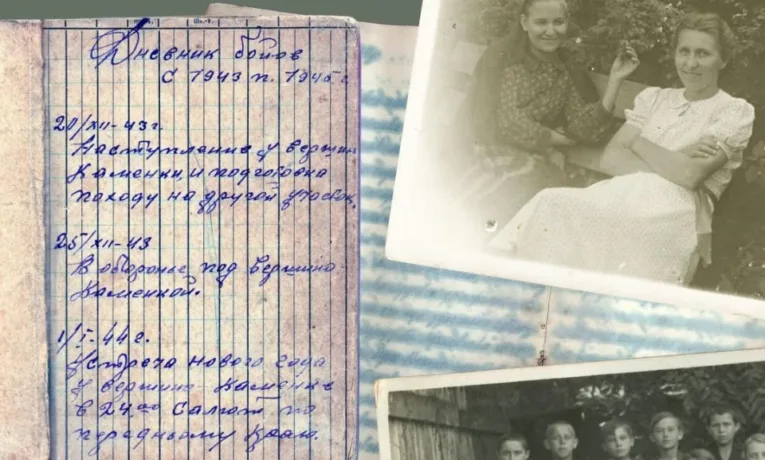 Дневник боёв
с 1943 п. 1945 г.
20/XII-43г.
Наступление у вершин
Каменки и подготовка
походу на другой участок.
25/XII-43
В обороне под вершино
Каменкой.
1/I-44 г.
Устреча нового года
у вершино Каменке
в 24-00 Салют по
передньому Краю.